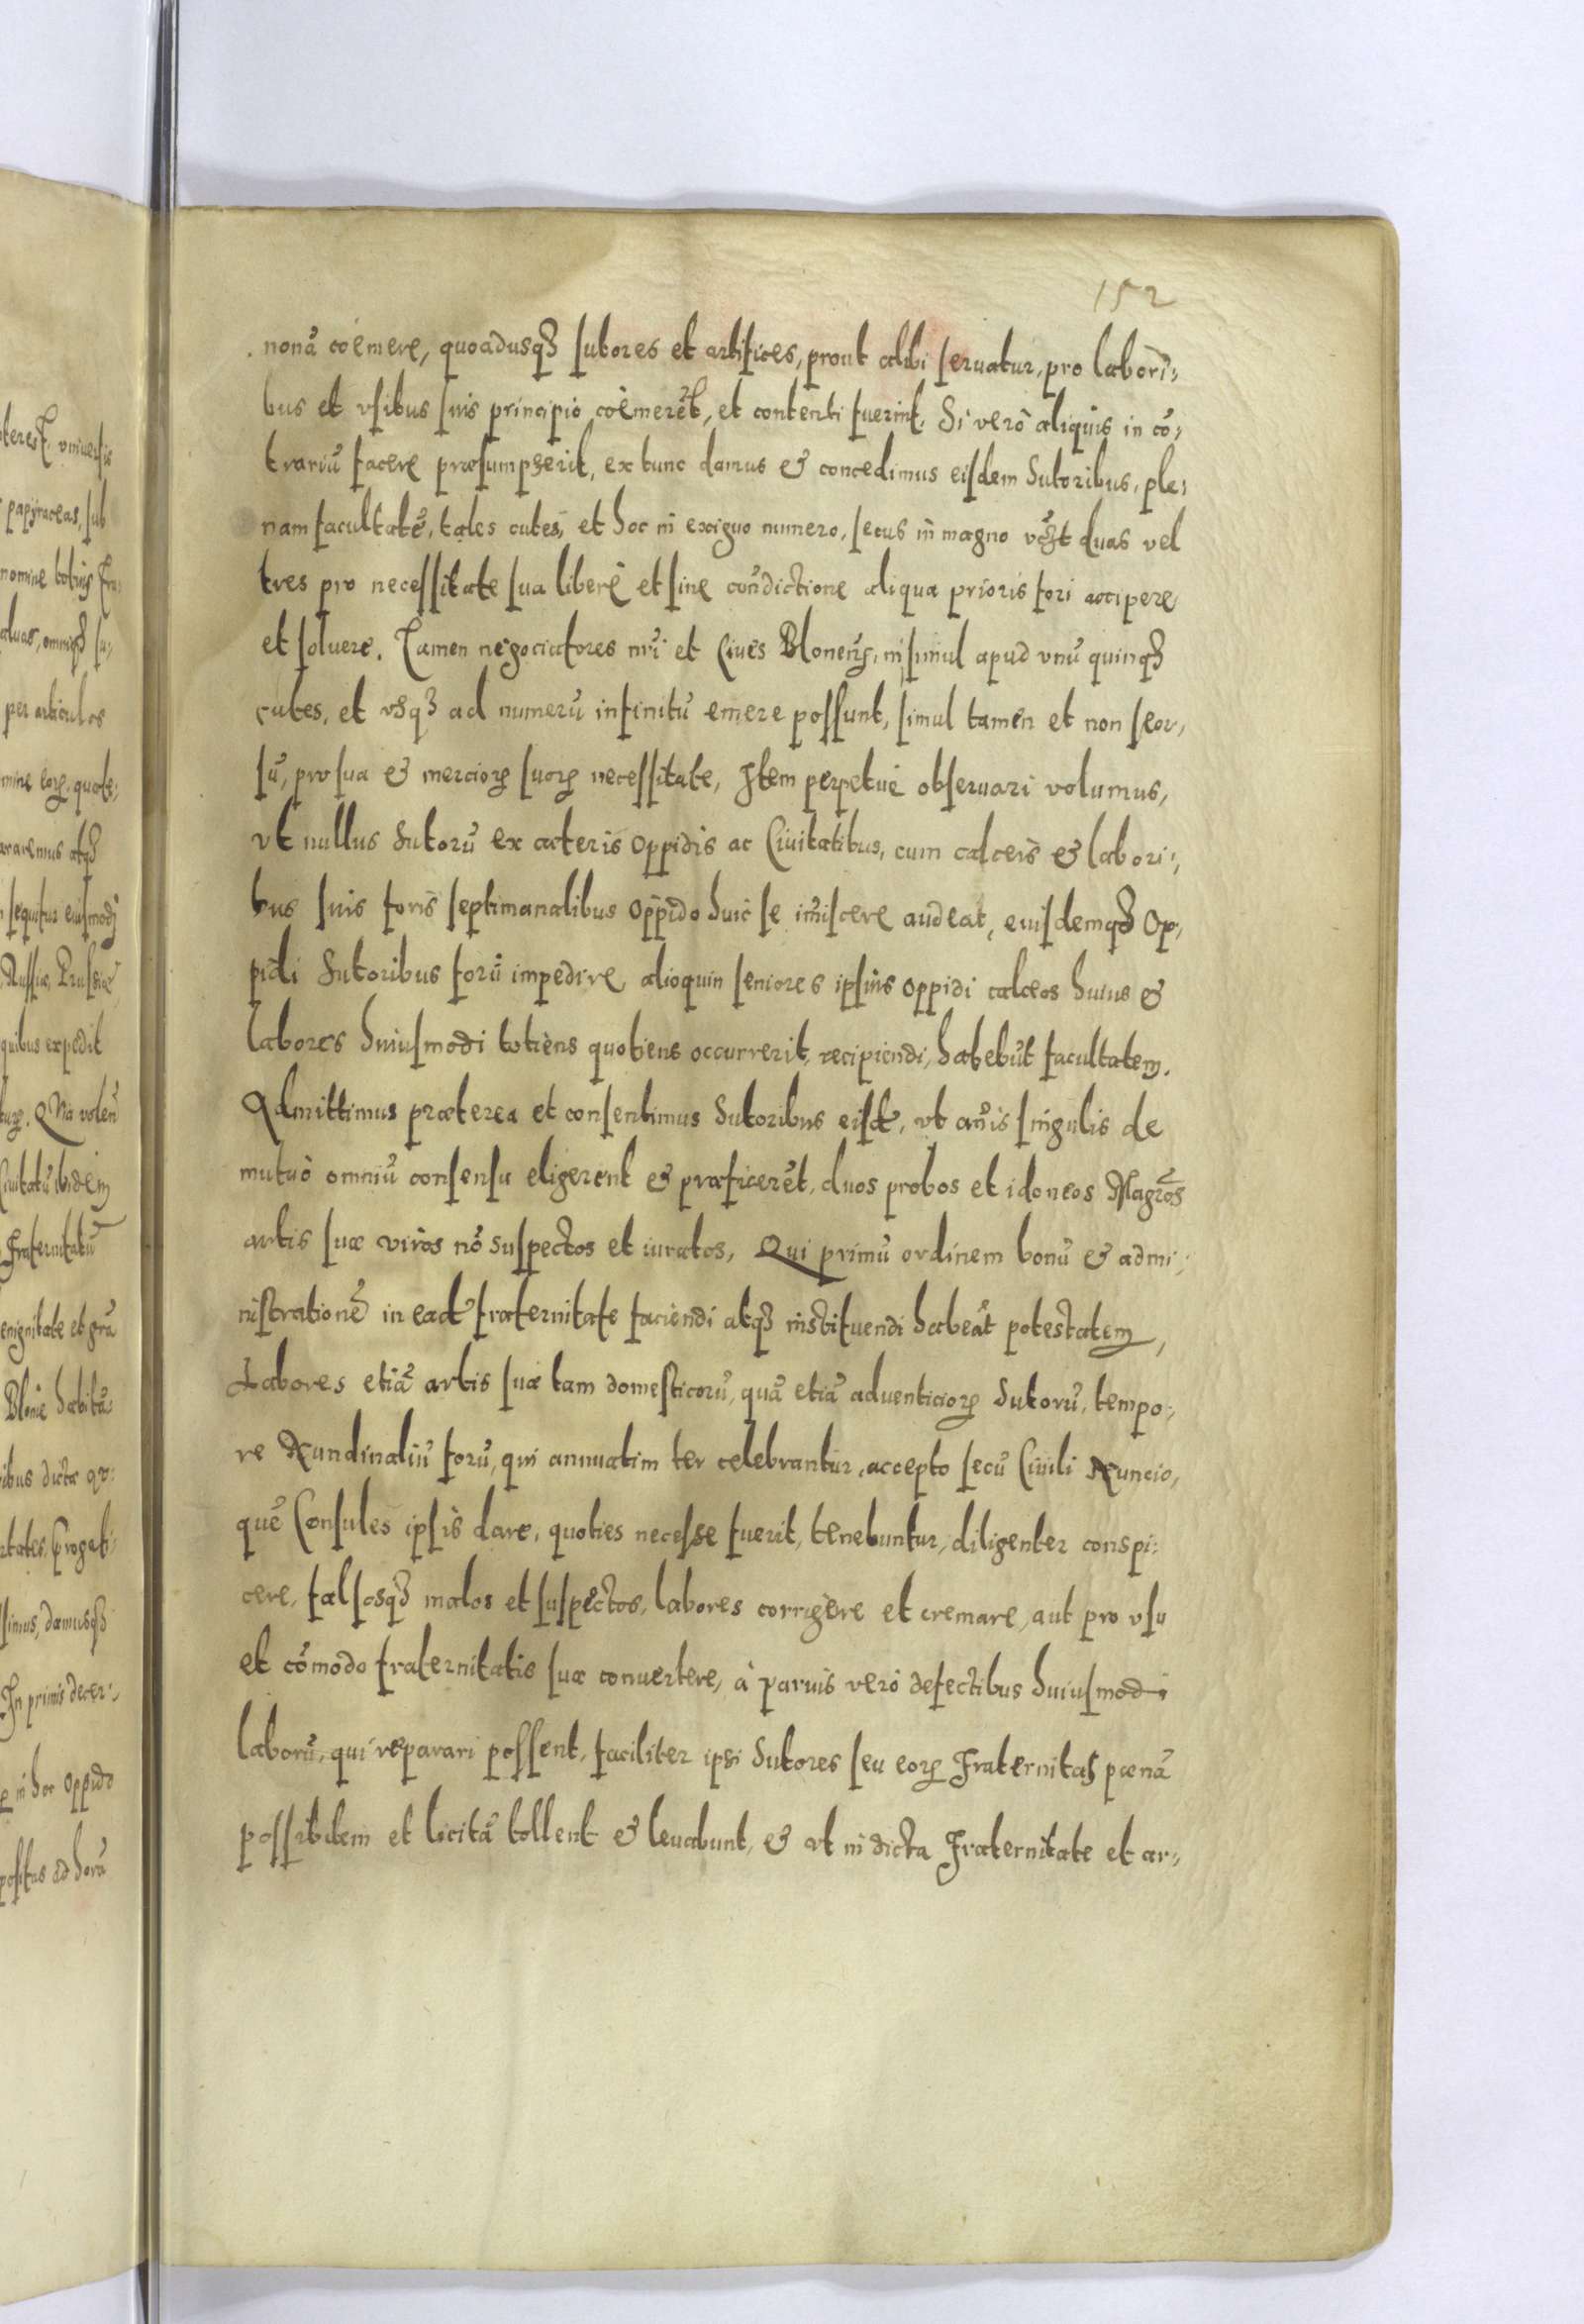 152
nonã coëmere, quoadusqȝ sutores et artifices, prout alibi seruatur, pro labori,
bus et vsibus suis principio coëmerēt, et contenti fuerint. Si verò aliquis in cō,
trariũ facere præsumpserit, ex tunc damus & concedimus eisdem Sutoribus, ple,
nam facultatẽ, tales cutes, et hoc in exiguo numero, secus in magno vꝫt duas vel
tres pro necessitate sua liberè et sine condictione aliqua prioris fori accipere
et soluere. Tamen negociatores nr̃i et Ciues Blonens, insimul apud vnũ quinqȝ
cutes, et vsqȝ ad numerũ infinitũ emere possunt, simul tamen et non seor,
sũ, pro sua & merciorꝝ suorꝝ necessitate, Item perpetuè obseruari volumus,
vt nullus Sutorũ ex cæteris oppidis ac Ciuitatibus, cum calceis & labori,
bus suis foris septimanalibus oppido huic se im̃iscere audeat, eiusdemqȝ Op,
pidi Sutoribus forũ impedire, alioquin seniores ipsius oppidi calceos huius &
labores huiusmodi totiens quotiens occurrerit, recipiendi, habebũt facultatem.
Admittimus præterea et consentimus Sutoribus eisd̃, vt an̄is singulis de
mutuò omniũ consensu eligerent & præficerẽt, duos probos et idoneos Magr̃os
artis suæ viros nõ suspectos et iuratos, Qui primũ ordinem bonũ & admi,
nistrationẽ in ead̃ fraternitate faciendi atqȝ instituendi habeãt potestatem,
Labores etiã artis suæ tam domesticorũ, quã etiã aduenticiorꝝ Sutorũ, tempo,
re Nundinaliũ forũ, qui annuatim ter celebrantur, accepto secũ Ciuili Nuncio,
quẽ Consules ipsis dare, quoties necesse fuerit, tenebuntur, diligenter conspi,
cere, falsosqȝ malos et suspectos, labores corrigere et cremare, aut pro vsu
et cõmodo fraternitatis suæ conuertere, à paruis verò defectibus huiusmodi
laborũ, qui reparari possent, faciliter ipsi Sutores seu eorꝝ Fraternitas pœnã
possibilem et licitã tollent & leuabunt, & vt in dicta Fraternitate et ar,